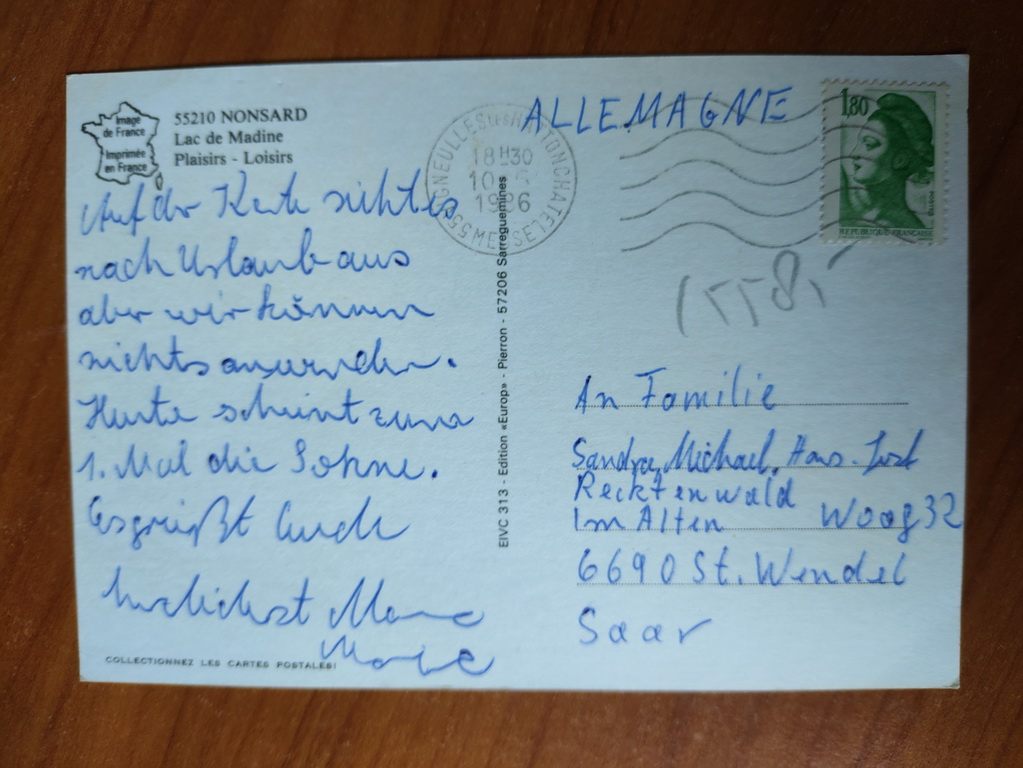 Image
de France
Imprimée
en France
55210 NONSARD
Lac de Madine
Plaisirs - Loisirs
Auf der Karte sieht es
nach Urlaub aus
aber wir können
nichts anwenden.
Heute scheint zum
1. Mal die Sonne.
Es grüßt Euch
herzlichst
COLLECTIONNEZ LES CARTES POSTALES!
EIVC 313 - Edition «Europ» - Pierron - 57206 Sarreguemines
VIGNEULLES LES HATTONCHATEL
18H30
10
1986
55 MEUSE
ALLEMAGNE
1,80
REPUBLIQUE FRANÇAISE
An Familie
Sandra, Michael, Hans-Jost
Recktenwald
Im Alten Woog 32
6690 St. Wendel
Saar